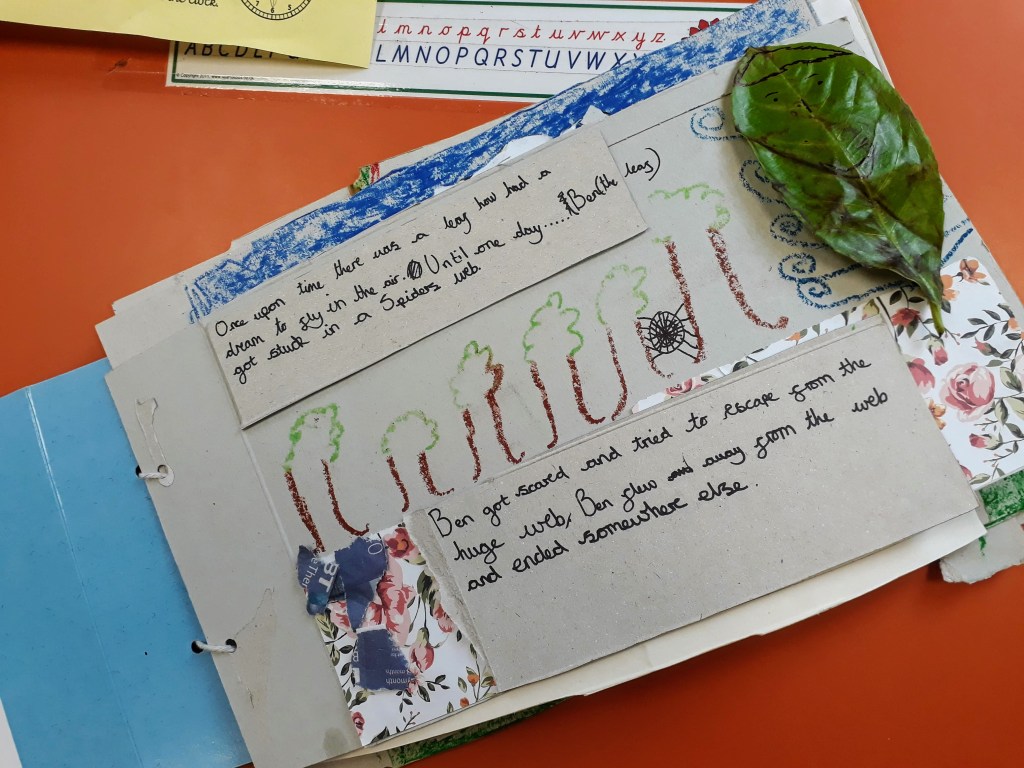 the clock.
l m n o p q r s t u v w x y z
ABCDEF
LMNOPQRSTUVWX
Once upon time there was a leaf how had a
dream to fly in the air. Until one day..... (Ben (the leaf)
got stuck in a Spiders web.
Ben got scared and tried to escape from the
huge web, Ben flew away from the web
and ended somewhere else.
BT
month